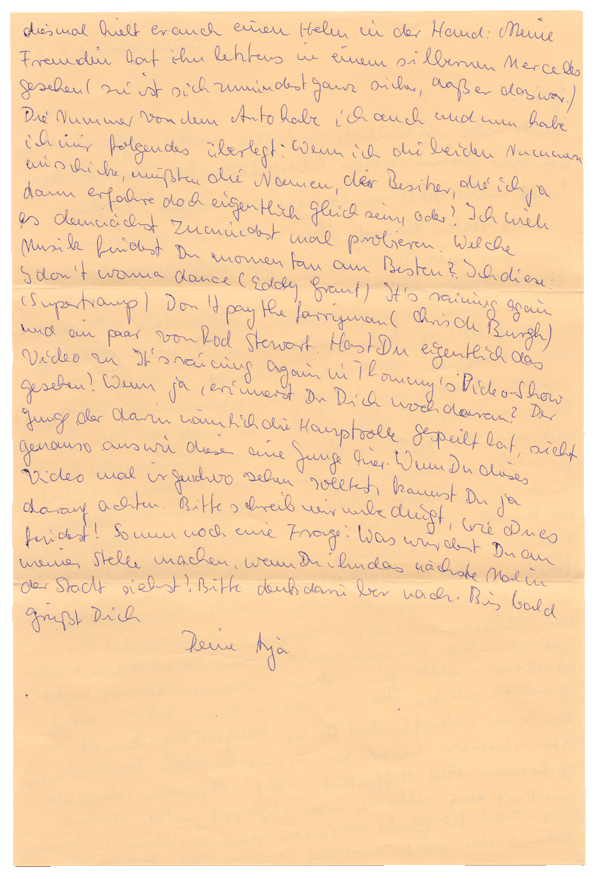 diesmal hielt er auch einen Helm in der Hand! Meine
Freundin hat ihn letztens in einem silbernen Mercedes
gesehen (sie ist sich zumindest ganz sicher, daß er das war.)
Die Nummer von dem Auto habe ich auch und nun habe
ich mir folgendes überlegt: Wenn ich die beiden Nummern
einschicke, müßten die Namen, der Besitzer, die ich ja
dann erfahre doch eigentlich gleich sein, oder? Ich werde
es demnächst zumindest mal probieren. Welche
Musik findest Du momentan am Besten? Ich diese:
I don't wanna dance (Eddy Grant) It's raining again
(Supertramp) Don't pay the farryman (Chris de Burgh)
und ein paar von Rod Stewart. Hast Du eigentlich das
Video zu It's raining again in Thommy's Videoshow
gesehen? Wenn ja, erinnerst Du Dich noch daran? Der
Junge der darin nämlich die Hauptrolle gespeilt hat, sieht
genauso aus wie dieser eine Junge hier. Wenn Du dieses
Video mal irgendwo sehen solltest, kannst Du ja
darauf achten. Bitte schreib mir unbedingt, wie Du es
findest! So nun noch eine Frage: Was würdest Du an
meiner Stelle machen, wenn Du ihn das nächste Mal in
der Stadt siehst? Bitte denk darüber nach. Bis bald
grüßt Dich
Deine Anja